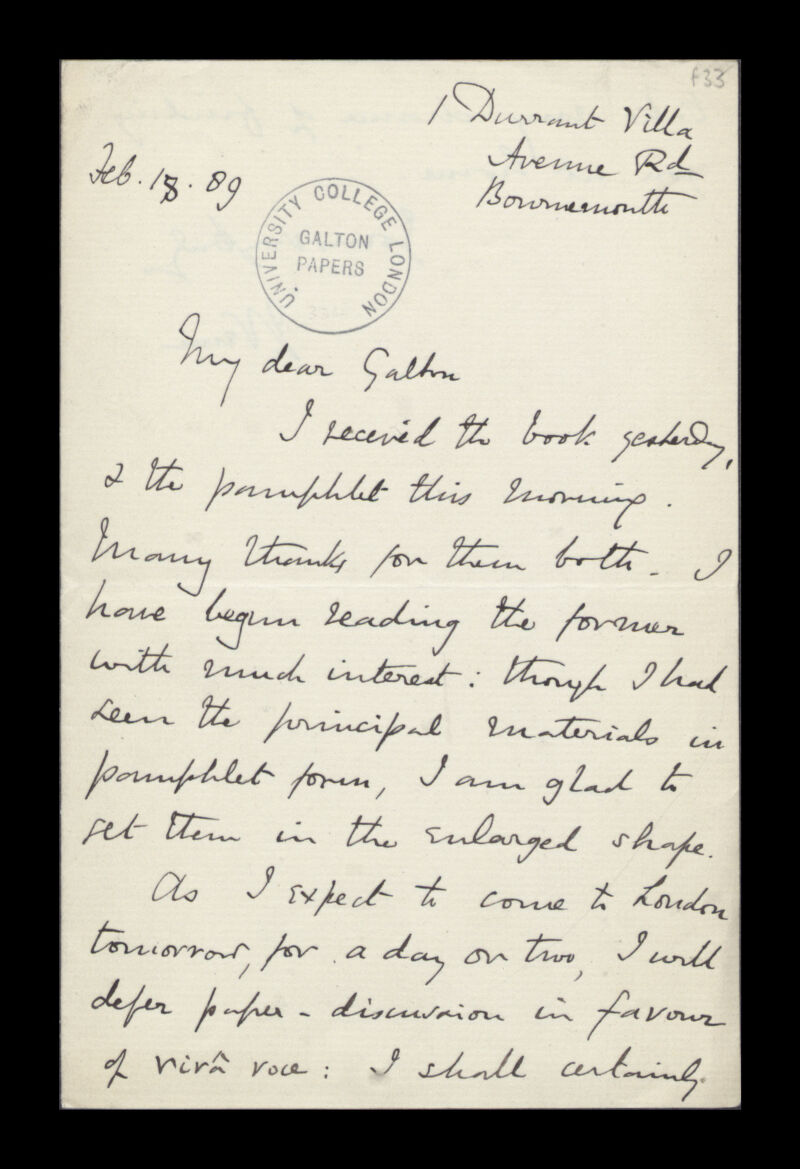 f33
1 Durrant Villa
Avenue Rd
Bournemouth
Feb. 18. 89
UNIVERSITY COLLEGE LONDON
GALTON
PAPERS
My dear Galton
I received the book yesterday,
& the pamphlet this morning.
Many thanks for them both. I
have begun reading the former
with much interest: though I had
seen the principal materials in
pamphlet form, I am glad to
get them in the enlarged shape.
As I expect to come to London
tomorrow, for a day or two, I will
defer paper-discussion in favour
of vivâ voce: I shall certainly